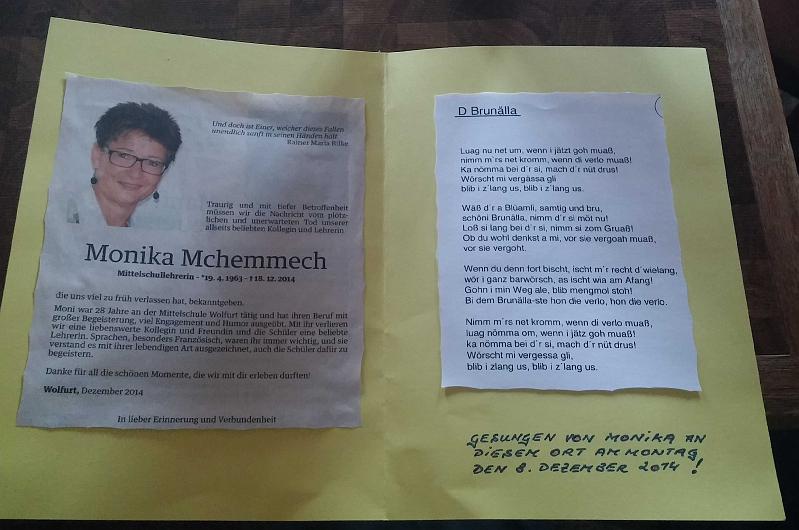 Und doch ist Einer, welcher dieses Fallen
unendlich sanft in seinen Händen hält
Rainer Maria Rilke
Traurig und mit tiefer Betroffenheit
müssen wir die Nachricht vom plötz-
lichen und unerwarteten Tod unserer
allseits beliebten Kollegin und Lehrerin
Monika Mchemmech
Mittelschullehrerin - *19. 4. 1963 - †18. 12. 2014
die uns viel zu früh verlassen hat, bekanntgeben.
Moni war 28 Jahre an der Mittelschule Wolfurt tätig und hat ihren Beruf mit
großer Begeisterung, viel Engagement und Humor ausgeübt. Mit ihr verlieren
wir eine liebenswerte Kollegin und Freundin und die Schüler eine beliebte
Lehrerin. Sprachen, besonders Französisch, waren ihr immer wichtig, und sie
verstand es mit ihrer lebendigen Art ausgezeichnet, auch die Schüler dafür zu
begeistern.
Danke für all die schönen Momente, die wir mit dir erleben durften!
Wolfurt, Dezember 2014
In lieber Erinnerung und Verbundenheit
D Brunälla
Luag nu net um, wenn i jätzt goh muaß,
nimm m´rs net kromm, wenn di verlo muaß!
Ka nömma bei d´r si, mach d´r nüt drus!
Wörscht mi vergässa gli
blib i z´lang us, blib i z´lang us.
Wäß d´r a Blüamli, samtig und bru,
schöni Brunälla, nimm d´r si möt nu!
Loß si lang bei d´r si, nimm si zom Gruaß!
Ob du wohl denkst a mi, vor sie vergoah muaß,
vor sie vergoht.
Wenn du denn fort bischt, ischt m´r recht d´wielang,
wör i ganz barwörsch, as ischt wia am Afang!
Gohn i min Weg ale, blib mengmol stoh!
Bi dem Brunälla-ste hon die verlo, hon die verlo.
Nimm m´rs net kromm, wenn di verlo muaß,
luag nömma om, wenn i jätz goh muaß!
ka nömma bei d´r si, mach d´r nüt drus!
Wörscht mi vergessa gli,
blib i zlang us, blib i z´lang us.
GESUNGEN VON MONIKA AN
DIESEM ORT AM MONTAG
DEN 8. DEZEMBER 2014 !